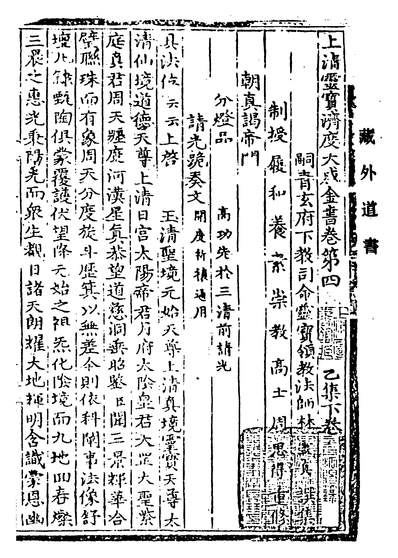 藏外道書
上清靈寶濟度大成金書卷第四 乙集下卷
嗣青玄府下教司命靈寶領教法師林 真 撰集
制授履和養素崇教高士周思得重修
朝真謁帝門
分燈品 高功先於三清前請光
請光跪奏文 開度祈禳通用
具法位云云上啓 玉清聖境元始天尊上清真境靈寶天尊太
清仙境道德天尊上清日宮太陽帝君月府太陰皇君大罡大聖紫
庭真君周天纏度河漢星真恭望道慈洞垂昭鑒臣聞三景輝華合
璧聯珠而有象周天分度旋斗歷箕以無差今則依科闡事法像舒
壇凡隸甄陶俱蒙覆護伏望降元始之祖炁化陰境而九地回春燦
三晨之惠光乘陽光而衆生覩日諸天朗耀大地輝明含識蒙恩幽